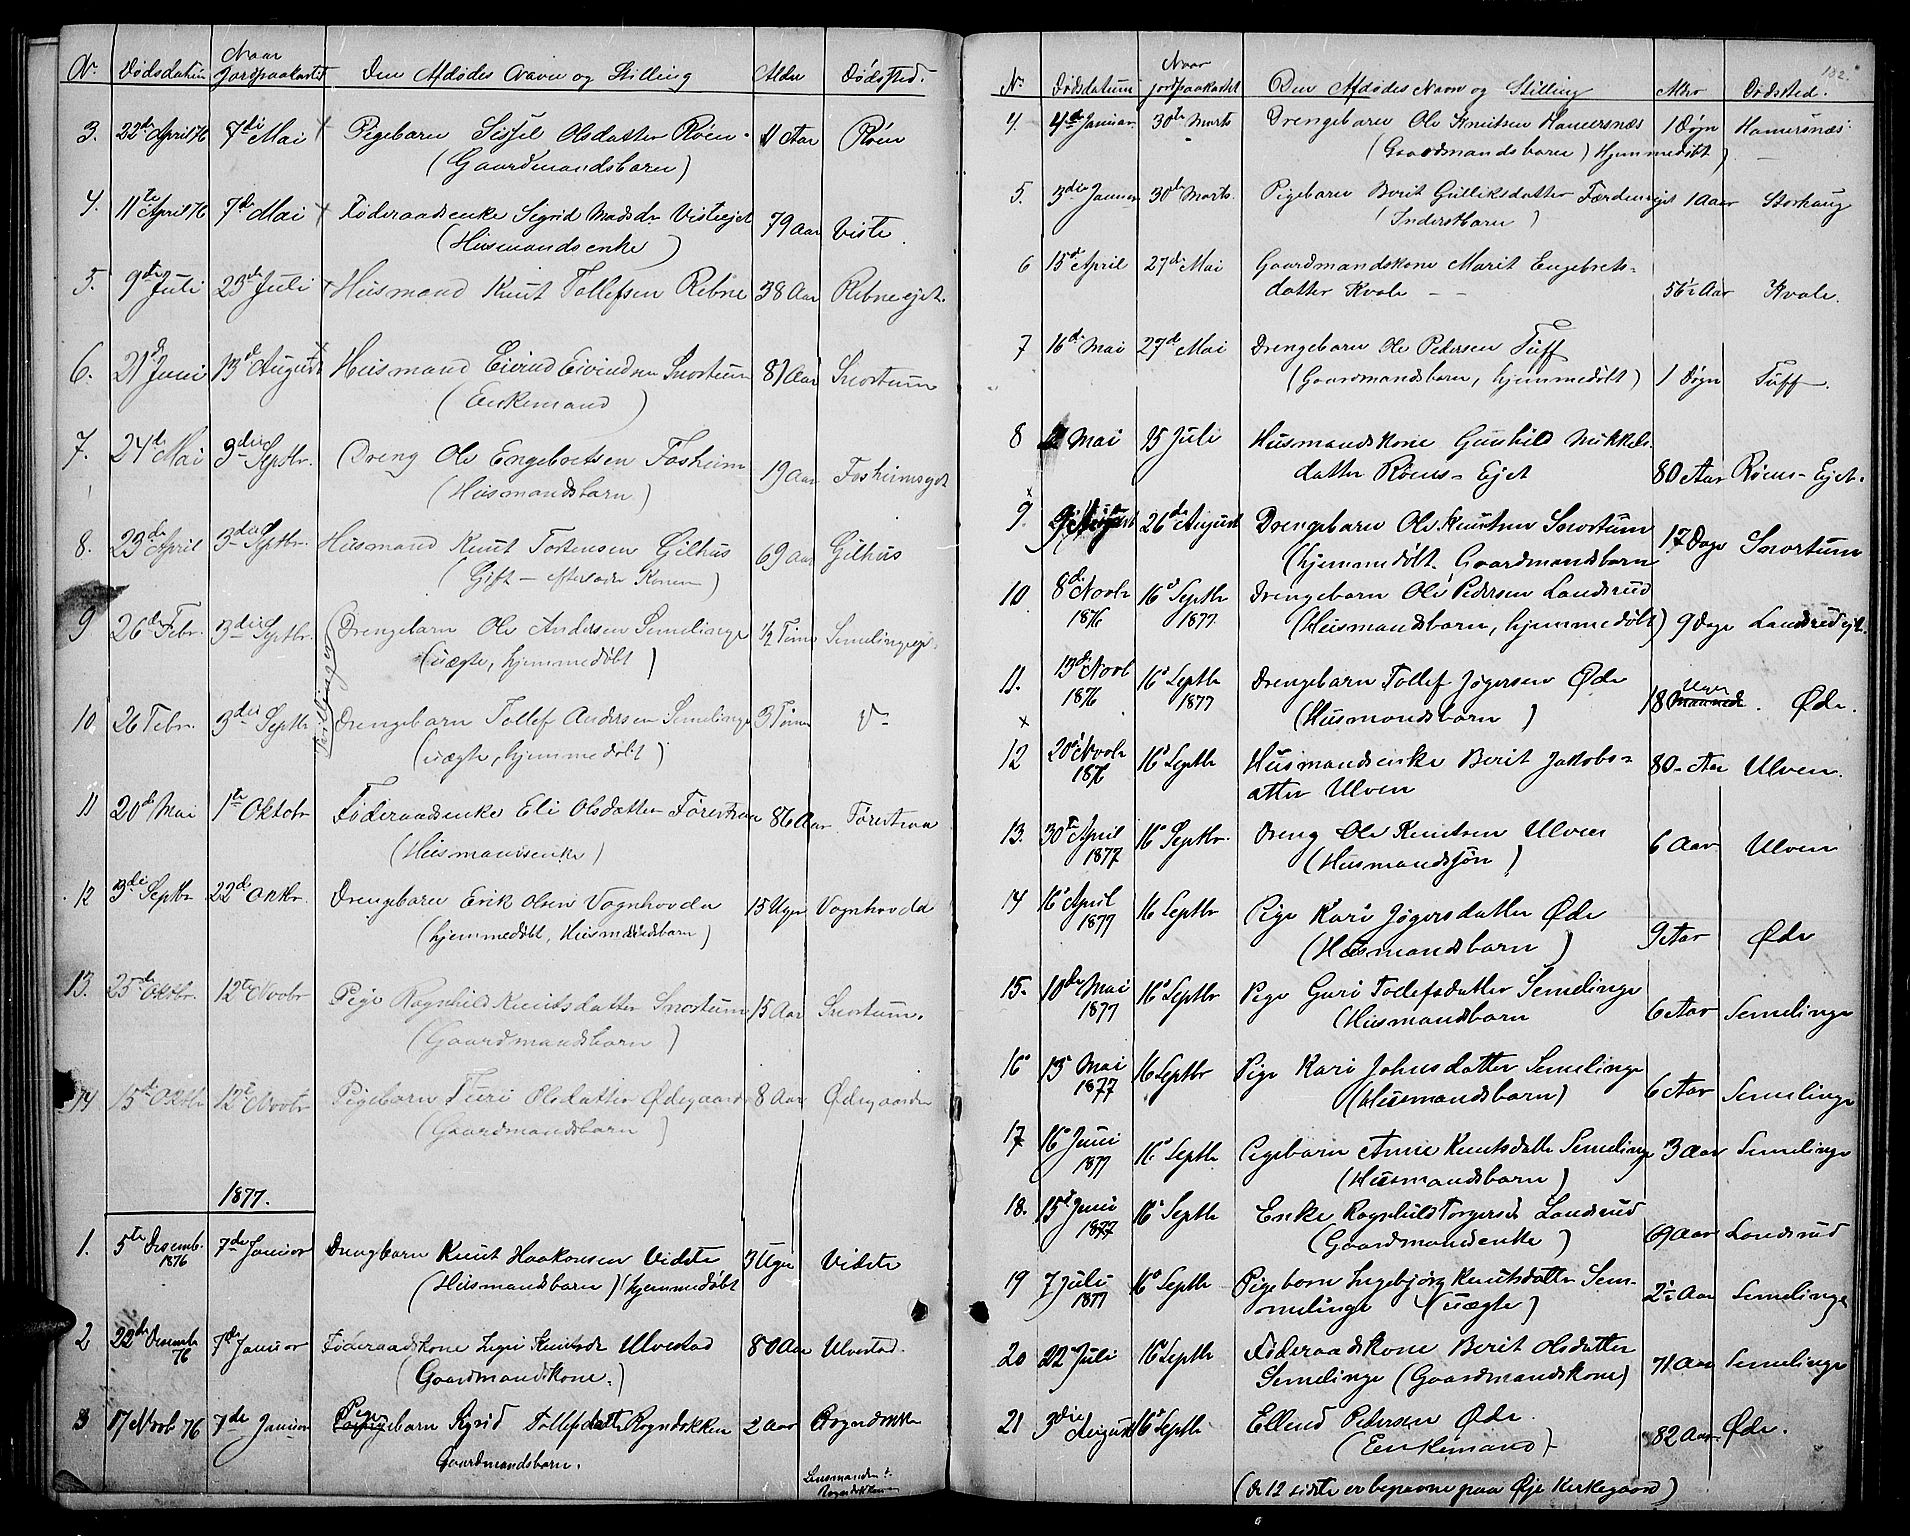 Nr. Dødsdatum Naar Jordpaakastet Den Afdødes Navn og Stilling Alder Dødsted.
3. 22de April 76 7di Mai Pigebarn Sissel Olsdatter Røen 11 Aar Røen
(Gaardmandsbarn)
4. 11te April 76 7de Mai Føderaadsenke Sigrid Madsdr. Visteejet 79 Aar Viste.
(Husmandsenke)
5. 9de Juli 23de Juli Husmand Knut Tollefsen Rebne 38 Aar Rebneejet.
6. 21de Juni 13de August Husmand Eivind Eivindsen Snortum 81 Aar Snortum
(Enkemand)
7. 24de Mai 3die Septbr. Dreng Ole Engebretsen Fosheim 19 Aar Fosheimsejet
(Husmandsbarn)
8. 23de April 3die Septbr. Husmand Knut Tortensen Gilhus 69 Aar Gilhus
(Gift – efterlader Konen)
9 26de Febr. 3die Septbr. Drengebarn Ole Andersen Semelinge 1/2 Time Semelingeej.
(uægte, hjemmedøbt)
Tvillinger
10. 26 Febr. 3die Septbr Drengebarn Tollef Andersen Semelinge 3 Timer
(uægte, hjemmedøbt)
11 20de Mai 1ste Oktobr Føderaadsenke Eli Olsdatter Førestraa 86 Aar Førestraa
(Husmandsenke)
12 3die Septbr 22de Oktbr. Drengebarn Erik Olsen Vognhovda 15 Uger Vognhovda
(hjemmedøbt, Husmandsbarn)
13. 25de Oktbr. 12te Novbr Pige Ragnhild Knutsdatter Snortum 15 Aar Snortum.
(Gaardmandsbarn)
14 15de Oktbr 12te Novbr Pigebarn Turi Olsdatter Ødegaarden 8 Aar Ødegaarden
(Gaardmandsbarn)
1877.
1. 5te Desemb. 1876 7de Januar Drengbarn Knut Haakonsen Vidste 3 Uger Vidste
(Husmandbarn) (hjemmedøbt
2 22de Desemb. 76 7de Januar Føderaadskone Knutsdr Ulvestad 80 Aar Ulvestad.
(Gaardmandskone.)
3 17 Novb 76 7de Januar Pigebarn Sigrid Tollefsdatt. Rogndokken 2 Aar Rogndokken
Gaardmandsbarn.
182.
Nr. Dødsdatum Naar jordpaakastet Den Afdødes Navn og Stilling Alder Dødsted.
4. 4de Januar 30te Marts Drengebarn Ole Knutsen Hamersnæs 1 Døgn Hamersnæs
(Gaardmandsbarn) Hjemmedøbt)
5. 3die Januar 30te Marts. Pigebarn Berit Gulliksdatter Færdenejet 1 Aar Storhaug
(Inderstbarn)
6 15de April 27de Mai Gaardmandskone Marit Engebrets-
datter Kvale 56½ Aar Kvale.
7 16de Mai 27de Mai Drengebarn Ole Pedersen Tuff
(Gaardmandsbarn, hjemmedøbt) 1 Døgn Tuff.
8 Mai 15 Juli Husmandskone Gunhild Mikkels-
datter Røens-Ejet 80 Aar Røens-Ejet.
9 August 26de August Drengebarn Ole Knutsen Snortum 17 Dage Snortum
(hjemmedøbt. Gaardmandsbarn
10 8de Novbr 1876 16d Septbr 1877 Drengebarn Ole Pedersen Landsrud
(Husmandbarn, hjemmedøbt) 9 Dage Landsrudejt.
11. 13de Novb 1876 16d Septbr 1877 Drengebarn Tollef Jøgersen Øde 18 Uger Maaneder. Øde.
(Husmandsbarn)
12 20de Novbr 1876 16d Septbr Husmandsenke Berit Jakobs-
atter Ulven 80 Aar Ulven.
13. 30te April 1877 16d Septbr. Dreng Ole Knutsen Ulven 6 Aar Ulven
(Husmandssøn)
14 16d April 1877 16 Septbr Pige Kari Jøgersdatter Øde 9 Aar Øde
(Husmandsbarn)
15. 10de Mai 1877 16d Septbr Pige Guri Tollefsdatter Semelinge 6 Aar Semelinge
(Husmandbarn
16 13 Mai 1877 16 Septbr Pige Kari Johnsdatter Semelinge 6 Aar Semelinge
(Husmandsbarn)
17 16d Juni 1877 16d Septbr Pigebarn Anne Knutsdatter Semelinge 3 Aar Semelinge
(Husmandsbarn)
18. 15d Juni 1877 16d Septbr Enke Ragnhild Torgersd. Landsrud 69 Aar Landsrud
(Gaardmandsenke)
19 7 Juli 1877 16d Septbr Pigebarn Ingebjørg Knutsdatter Sem-
melinge (uægte) 2½ Aar Semelinge
20 22 Juli 16d Septbr Føderaadskone Berit Olsdatter
Semelinge (Gaardmandskone) 71 Aar Semelinge
21 3die August 16d Septbr Ellend Pedersen Øde. 82 Aar. Øde.
(Enkemand)
(de 12 sidste er begravne paa Øje Kirkegaard)